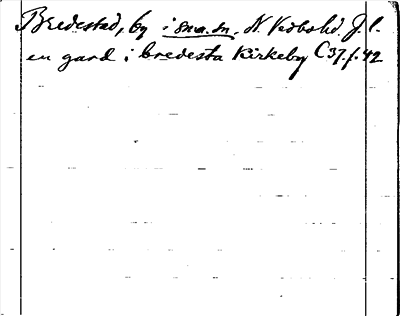 Bredestad, by i sma.sn. N. Vedbohd. J.l.
en gard i bredesta Kirkeby C37.f.42